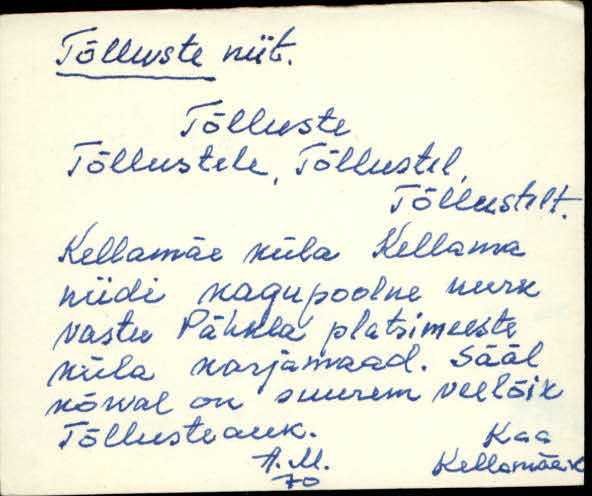 Tõlluste niit.
Tõlluste
Tõllustele, Tõllustel,
Tõllustelt.
Kellamäe küla Kellama
niidi kagupoolne nurk
vastu Pähkla platsimeeste
küla karjamaad. Sääl
kõrval on suurem veelõik
Tõllusteauk.
Kaa
A.M. Kellamäe k
70